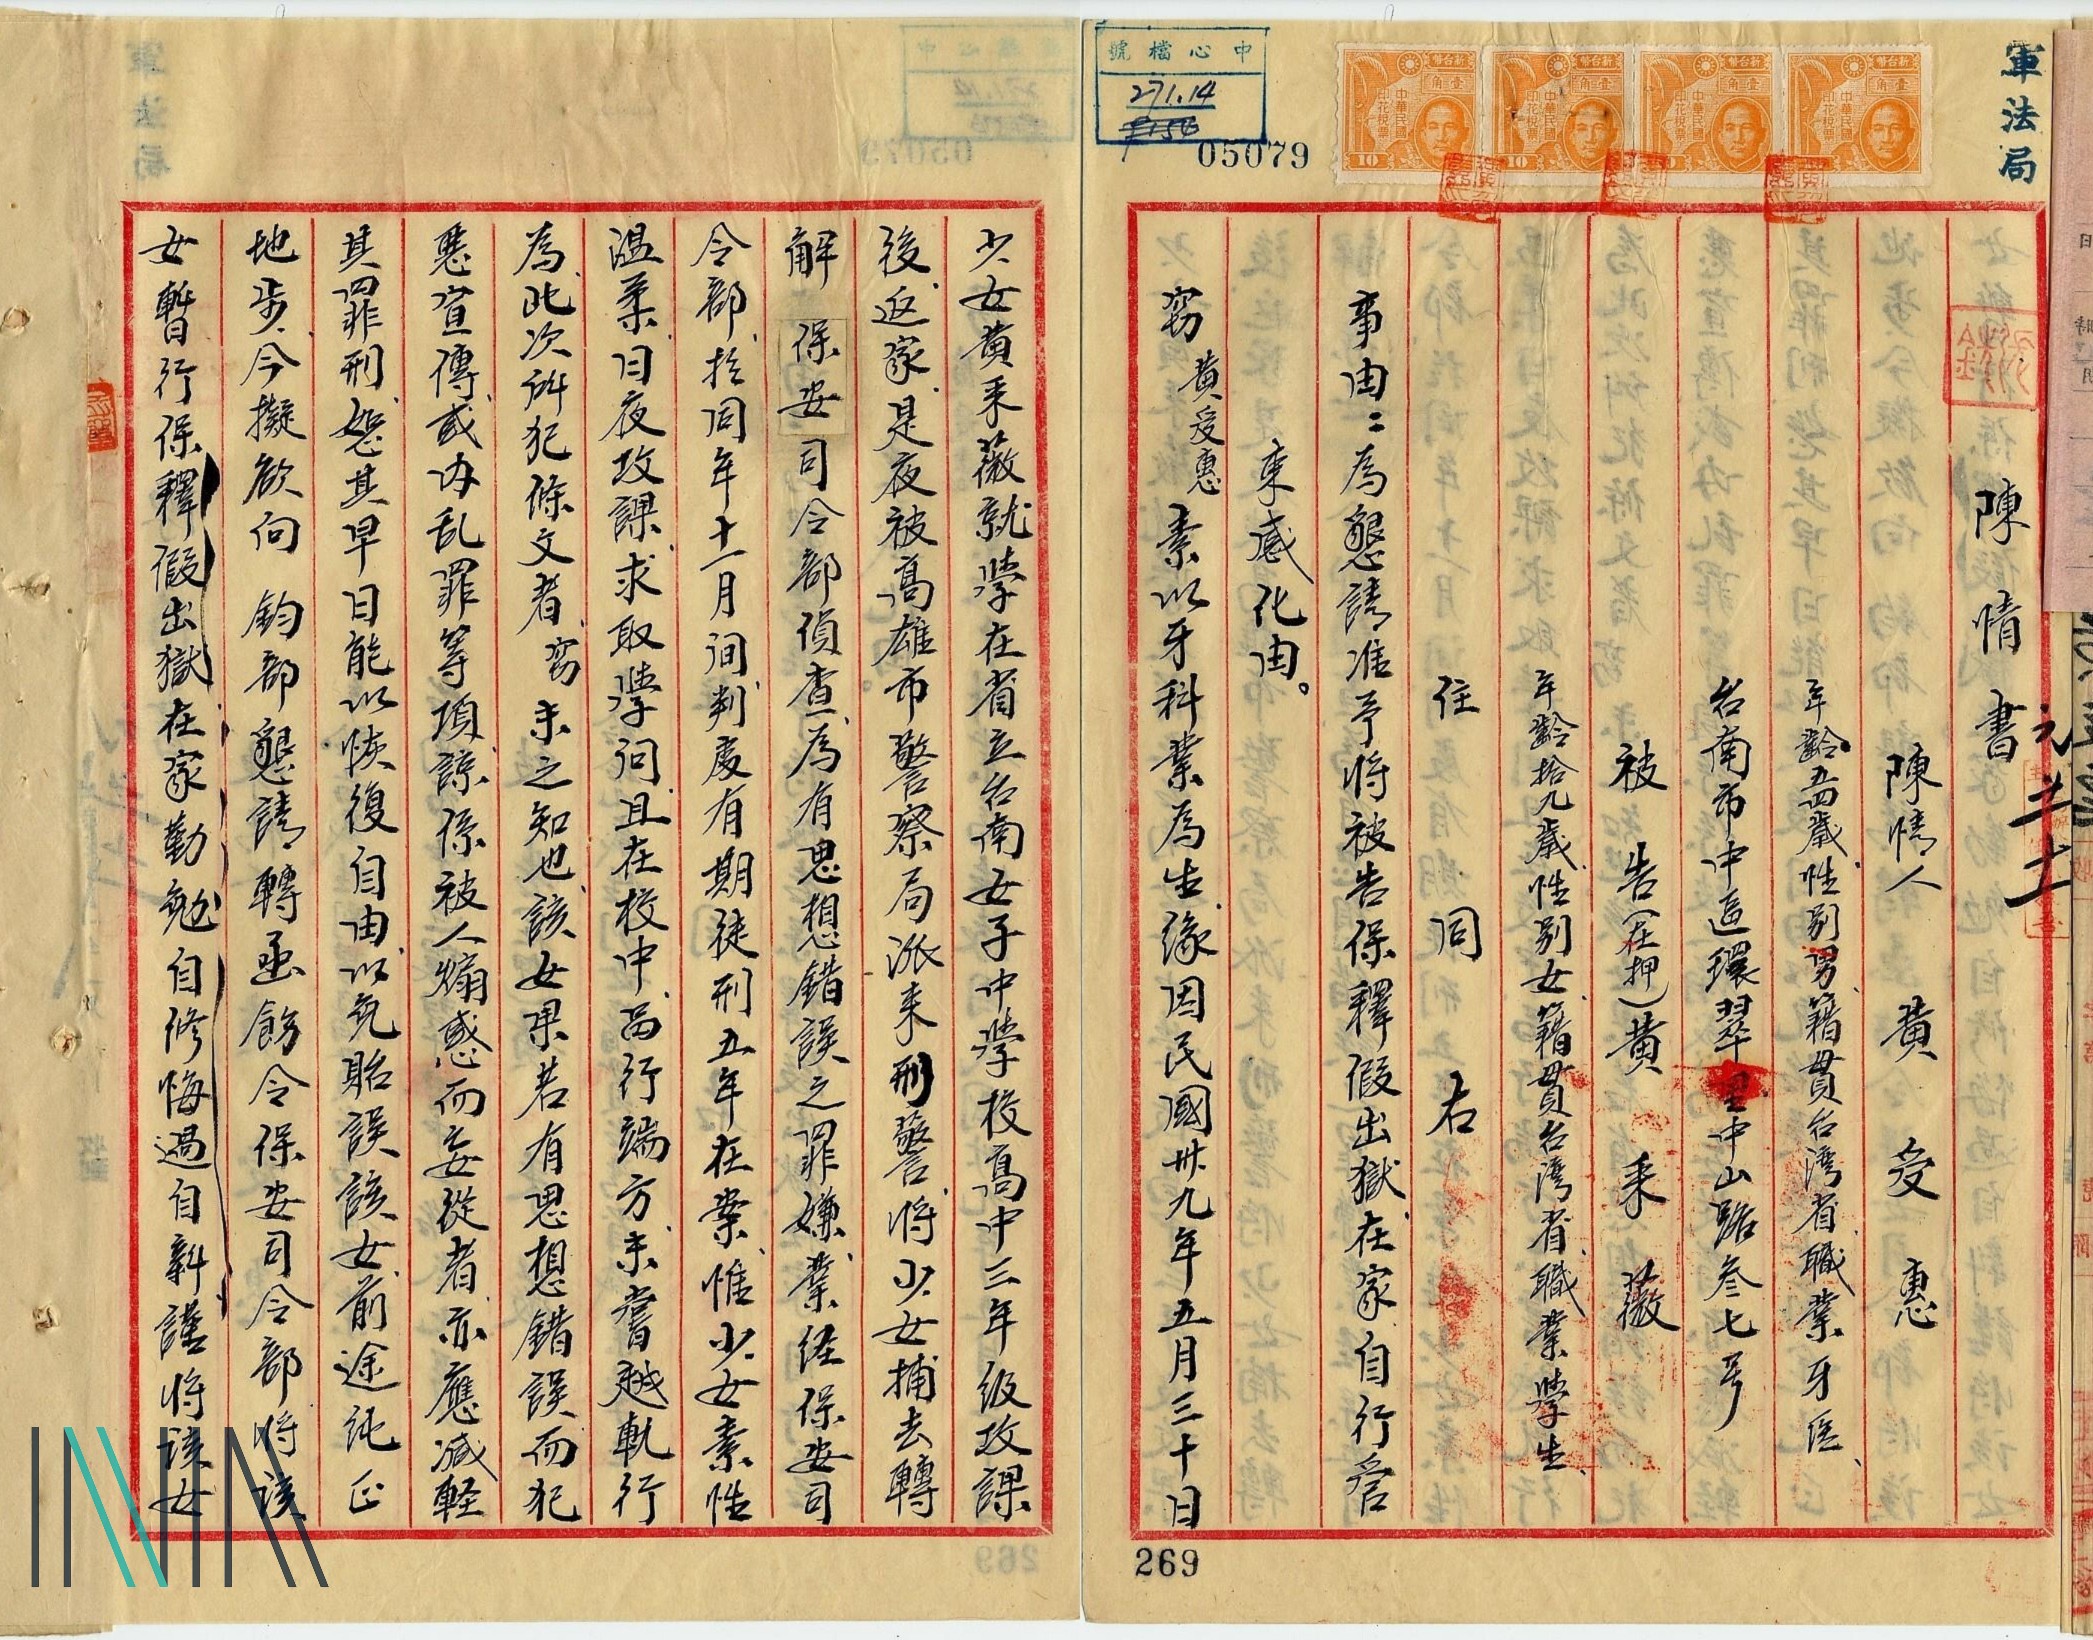 軍法局
中心檔號
271.14
05079
新台幣
壹角
中華民國印花稅票
10
新台幣
壹角
中華民國印花稅票
10
新台幣
壹角
中華民國印花稅票
10
新台幣
壹角
中華民國印花稅票
10
陳情書
陳情人 黃受惠
年齡五四歲性別男、籍貫台湾省、職業牙医、
台南市中區環翠里中山路叁七号
被告(在押)黃釆薇
年齡拾九歲、性别女、籍貫台湾省、職業学生、
住同右
事由:為懇請准予将被告保釋假出獄、在家自行管
束感化由。
窃黃受惠素以牙科業為生、緣因民國卅九年五月三十日
269
少女黃釆薇就学在省立台南女子中学校高中三年级攻課
後、返家、是夜被高雄市警察局派来刑警、将少女捕去轉
解 保安司令部偵查、為有思想錯誤之罪嫌、業経保安司
令部、於同年十一月间、判處有期徒刑五年在案、惟少女素性
溫柔、日夜攻課、求取学问、且在校中、品行端方、未嘗越軌行
為、此次所犯條文者、窃未之知也、該女果若有思想錯誤而犯
惡宣傳或内乱罪等項、諒係被人煽惑而妄從者、亦應減軽
其罪刑、恕其早日能以恢復自由、以免貽誤該女前途純正
地步、今擬欲向 鈞部懇請轉函飭令保安司令部将該
女暫行保釋假出獄在家勤勉自修悔過自新謹将该女